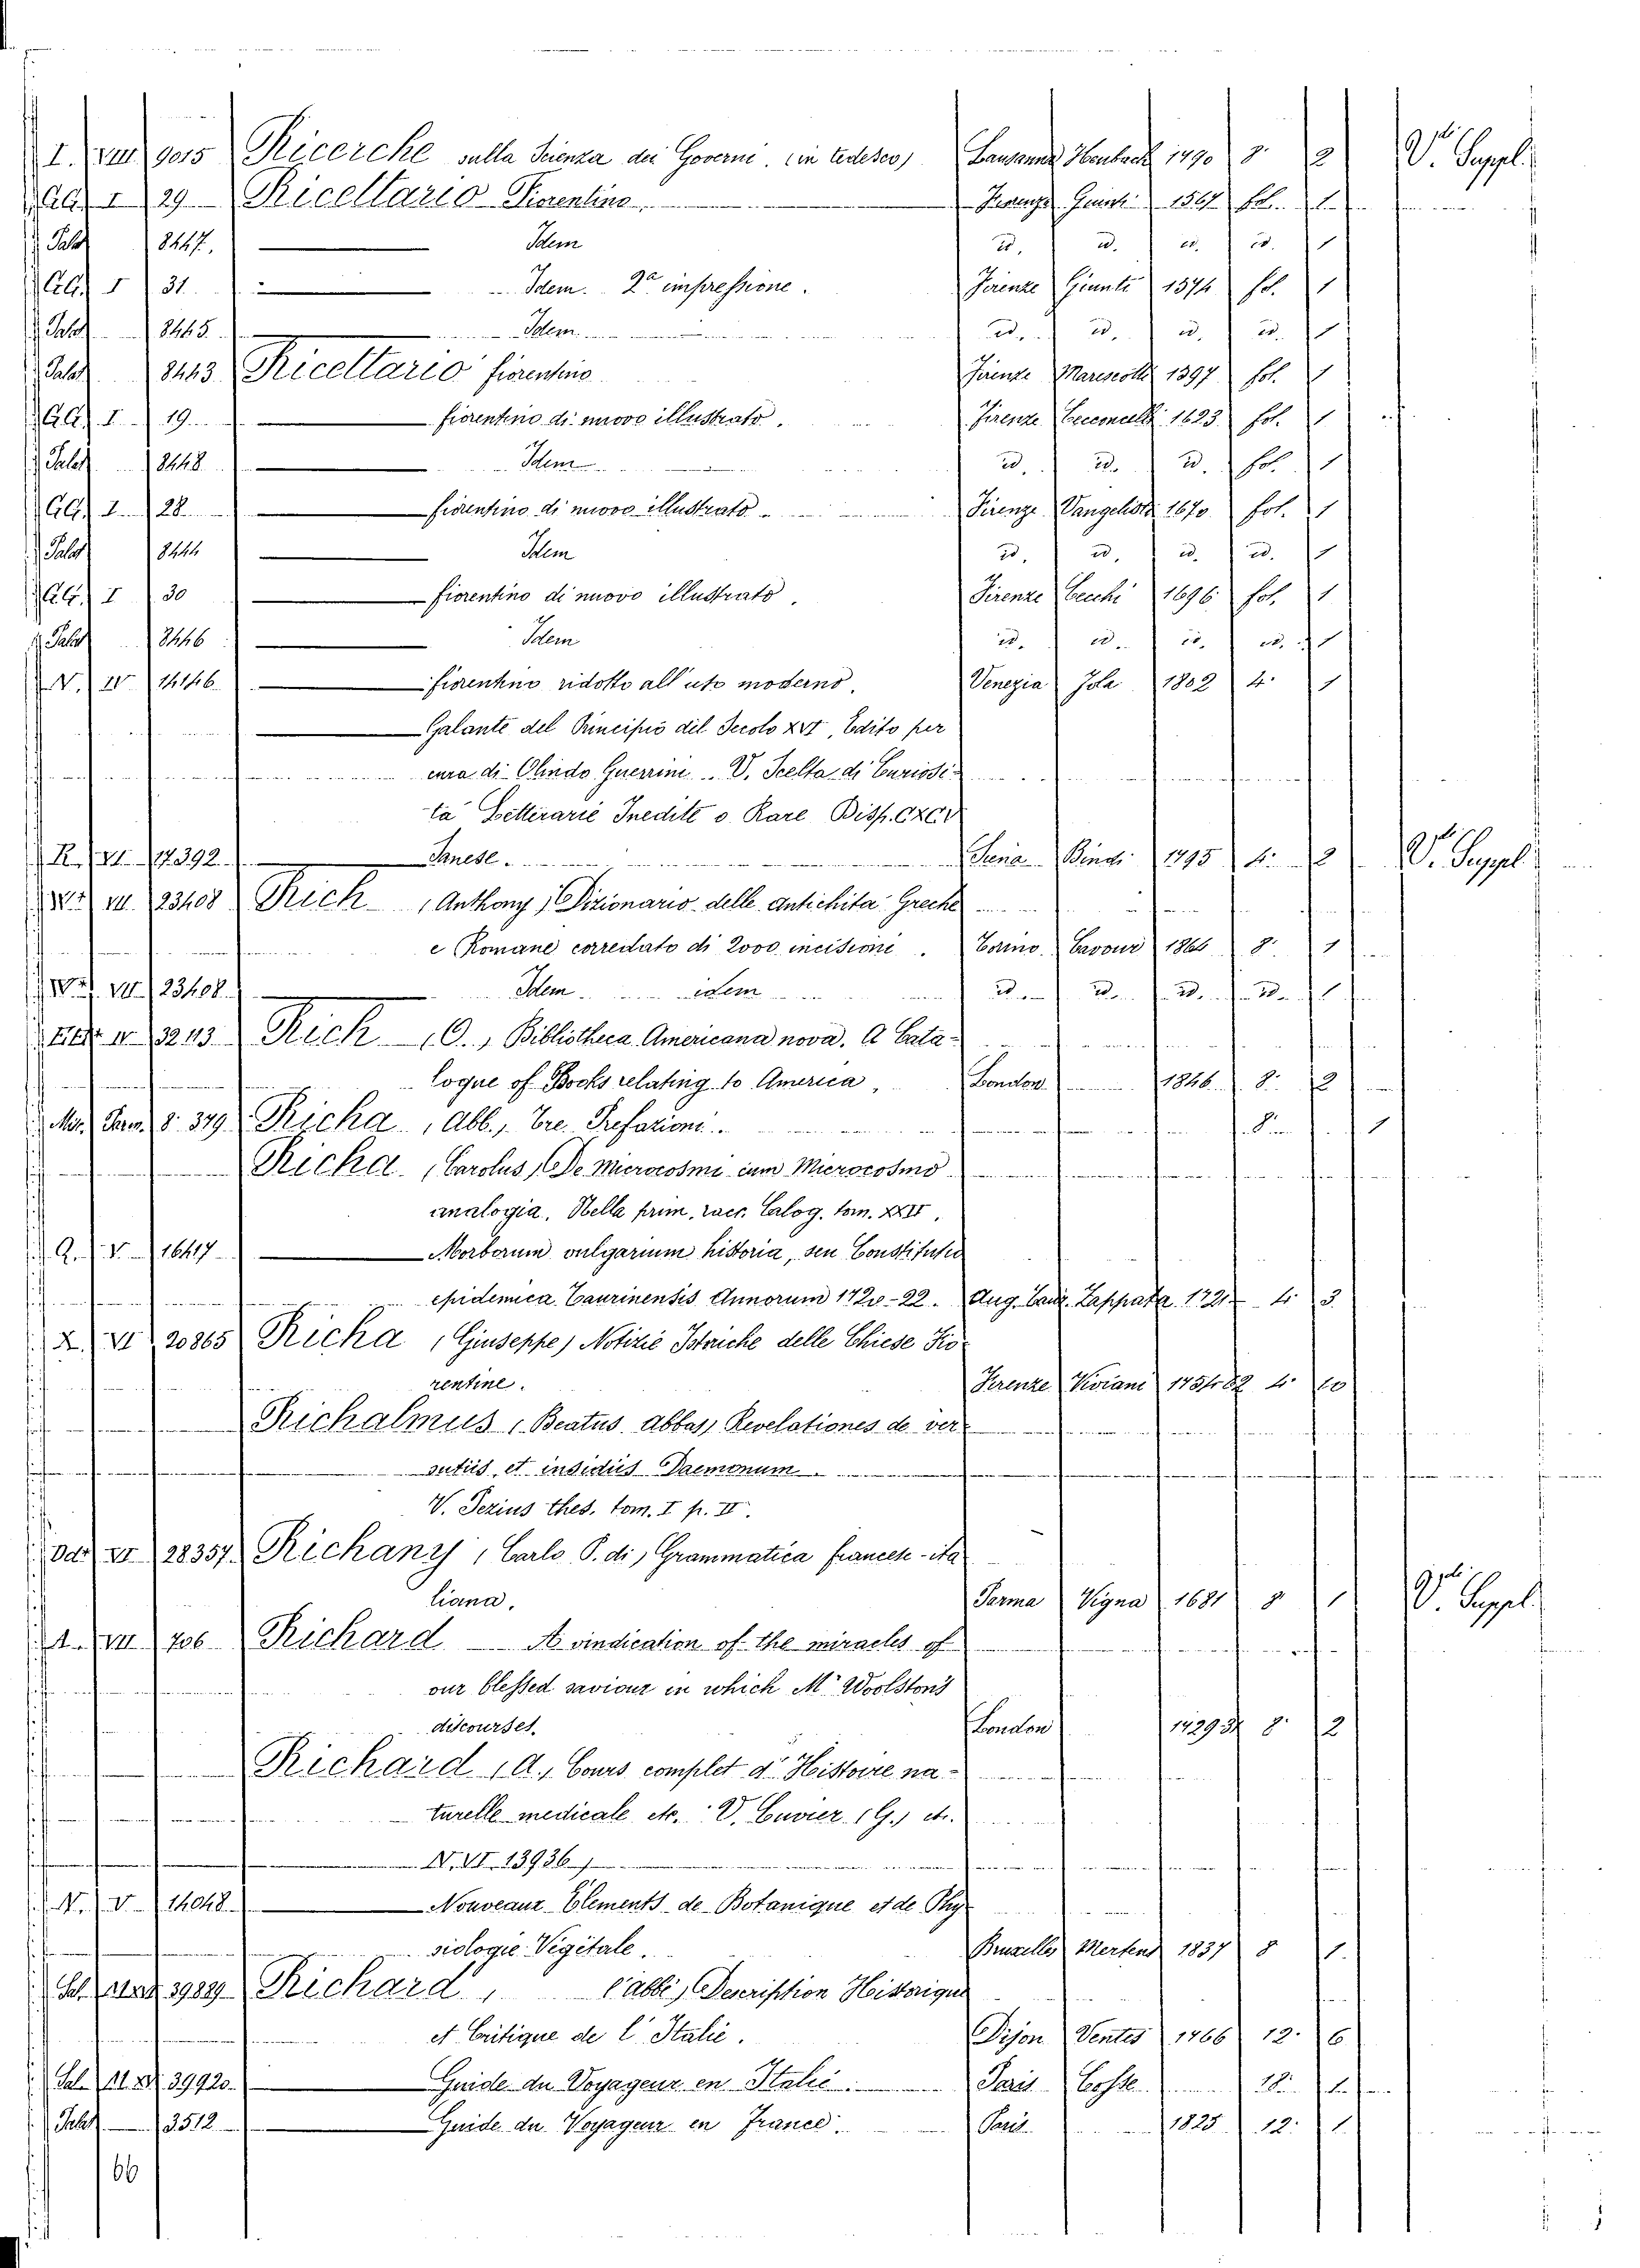 I. VIII 9015 Ricerche sulla Scienza dei Governi. (in tedesco) Lausanne Heubach 1790 8. 2 V. Suppl.
AA. I 29 Ricettario Fiorentino. Firenze Giunti 1567 fol. 1
Palat 8447. Idem id. id. id. id. 1
AA. I 31 Idem. 2a impressione. Firenze Giunti 1574 fol. 1
Palat 8445 Idem id. id. id. id. 1
Palat 8443 Ricettario fiorentino Firenze Marescotti 1597 fol. 1
AA. I 19 fiorentino di nuovo illustrato. Firenze Cecconcelli 1623 fol. 1
Palat 8448 Idem id. id. id. fol. 1
AA. I 28 fiorentino di nuovo illustrato Firenze Vangelisti 1670 fol. 1
Palat 8444 Idem id. id. id. id. 1
AA. I 30 fiorentino di nuovo illustrato. Firenze Cecchi 1696 fol. 1
Palat 8446 Idem id. id. id. id. 1
N. IV 14146 fiorentino ridotto all'uso moderno. Venezia Jola 1802 4. 1
Galante del Principio del Secolo XVI, Edito per
cura di Olindo Guerrini V. Scelta di Curiosi-
tà Letterarie Inedite o Rare Disp. CXCV
R. VI 17392 Sanese. Siena Bindi 1795 4. 2 V. Suppl.
VII 23408 Rich (Anthony) Dizionario delle antichita Greche
e Romane corredato di 2000 incisioni. Torino Cavour 1864 8. 1
VII 23408 Idem idem id. id. id. id. 1
3243 Rich (O.) Bibliotheca Americana nova. A Cata-
logue of Books relating to America. London 1846 8. 2
Mss. Parm. 8. 379 Richa (Abb.) Tre Prefazioni. 8. 1
Richa (Carolus) De Microcosmi cum Microcosmo
analogia. Nella prim. racc. Calog. tom. XXII.
Q. V 16417 Morborum vulgarium historia, seu Constitutio
epidemica Taurinensis Annorum 1720-22. Aug. Taur. Zappata 1721 4. 3
X. VI 20865 Richa (Giuseppe) Notizie Istoriche delle Chiese Fio-
rentine. Firenze Viviani 1754-62 4. 10
Richalmus (Beatus abbas) Revelationes de ver-
sutiis et insidiis Daemonum
V. Pezius thes. tom. I p. II.
VI 28357 Richany (Carlo P. di) Grammatica francese-ita
liana. Parma Vigna 1681 8 1 V. Suppl.
A. VII 706 Richard A vindication of the miracles of
our blessed saviour in which Mr Woolston's
discourses. London 1729 8. 2
Richard (A.) Cours complet d'Histoire na-
turelle medicale etc. V. Cuvier (G.) etc.
N. VI. 13936)
N. V 14048 Nouveaux Elements de Botanique et de Phy-
siologie Vegitale. Bruxelles Mertens 1837 8 1
39889 Richard, l'abbé) Description Historique
et Critique de l'Italie. Dijon Ventes 1766 12. 6
39920 Guide du Voyageur en Italie. Paris Cosse 18. 1
Palat 3512 Guide du Voyageur en France. Paris 1825 12. 1
66